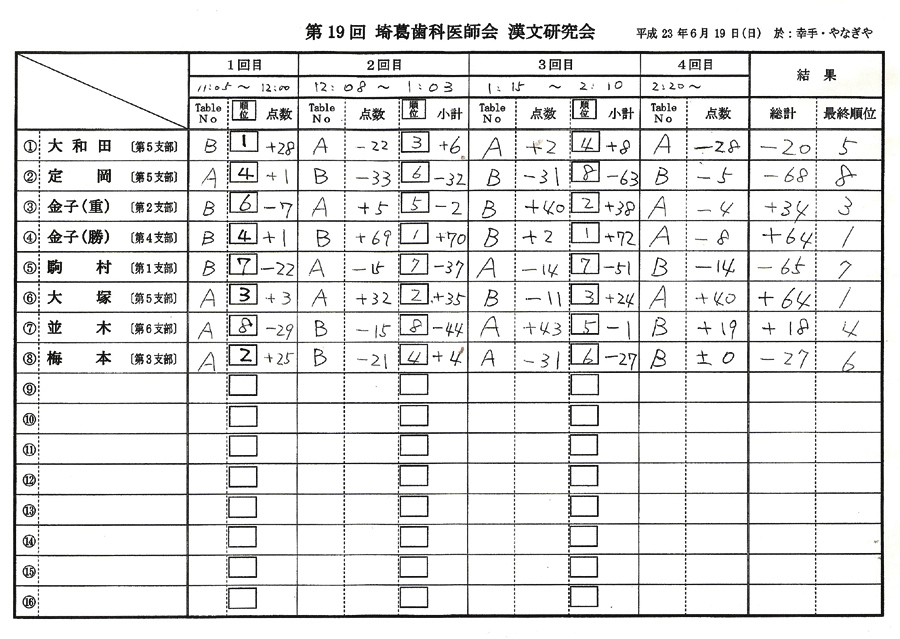 第19回 埼葛歯科医師会 漢文研究会 平成23年6月19日(日) 於:幸手・やなぎや
1回目 2回目 3回目 4回目 結果
11:05 ~ 12:00 12:08 ~ 1:03 1:15 ~ 2:10 2:20~
Table No 順位 点数 Table No 点数 順位 小計 Table No 点数 順位 小計 Table No 点数 総計 最終順位
① 大和田 〔第5支部〕 B 1 +28 A -22 3 +6 A +2 4 +8 A -28 -20 5
② 定岡 〔第5支部〕 A 4 +1 B -33 6 -32 B -31 8 -63 B -5 -68 8
③ 金子(重) 〔第2支部〕 B 6 -7 A +5 5 -2 B +40 2 +38 A -4 +34 3
④ 金子(勝) 〔第4支部〕 B 4 +1 B +69 1 +70 B +2 1 +72 A -8 +64 1
⑤ 駒村 〔第1支部〕 B 7 -22 A -15 7 -37 A -14 7 -51 B -14 -65 7
⑥ 大塚 〔第5支部〕 A 3 +3 A +32 2 +35 B -11 3 +24 A +40 +64 1
⑦ 並木 〔第6支部〕 A 8 -29 B -15 8 -44 A +43 5 -1 B +19 +18 4
⑧ 梅本 〔第3支部〕 A 2 +25 B -21 4 +4 A -31 6 -27 B ±0 -27 6
⑨
⑩
⑪
⑫
⑬
⑭
⑮
⑯